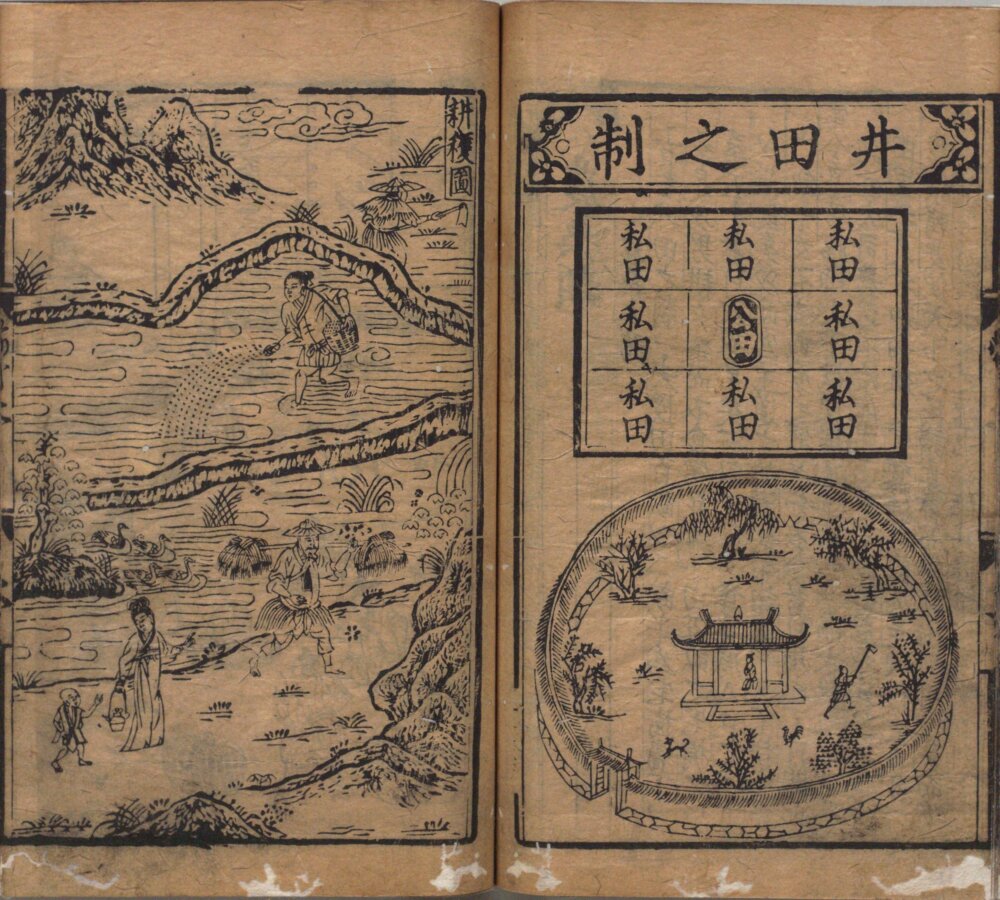 井田之制
私田
私田
私田
私田
公田
私田
私田
私田
私田
耕穫圖